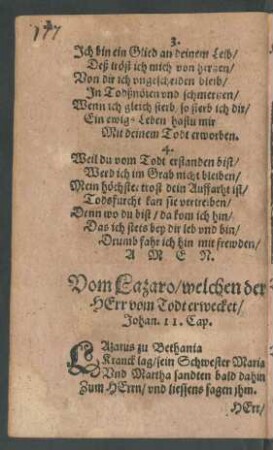 3.
Ich bin ein Glied an deinem Leib/
Deß tröst ich mich von hertzen/
Von dir ich vngescheiden bleib/
In Todßnöten vnd schmertzen/
Wenn ich gleich sterb/ so sterb ich dir/
Ein ewigs Leben hastu mir
Mit deinem Todt erworben.
4.
Weil du vom Todt erstanden bist/
Werd ich im Grab nicht bleiben/
Mein höchster trost dein Auffarht ist/
Todsfurcht kan sie vertreiben/
Denn wo du bist/ da kom ich hin/
Das ich stets bey dir leb vnd bin/
Drumb fahr ich hin mit frewden/
A M E N.
Vom Lazaro/ welchen der
HErr vom Todt erwecket/
Johan. 11. Cap.
LAzarus zu Bethania
Kranck lag/ sein Schwester Maria
Vnd Martha sandten bald dahin
Zum HErrn/ vnd liessens sagen jhm.
HErr/